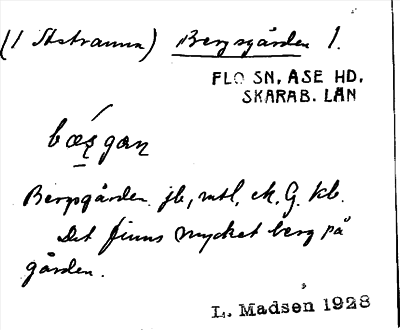 (1 Ststranna) Bergsgården 1.
FLO SN, ÅSE HD,
SKARAB. LÄN
bæʂgan
Bergsgården. jb, mtl, ek, G. kb.
Det finns mycket berg på
gården.
L. Madsen 1928